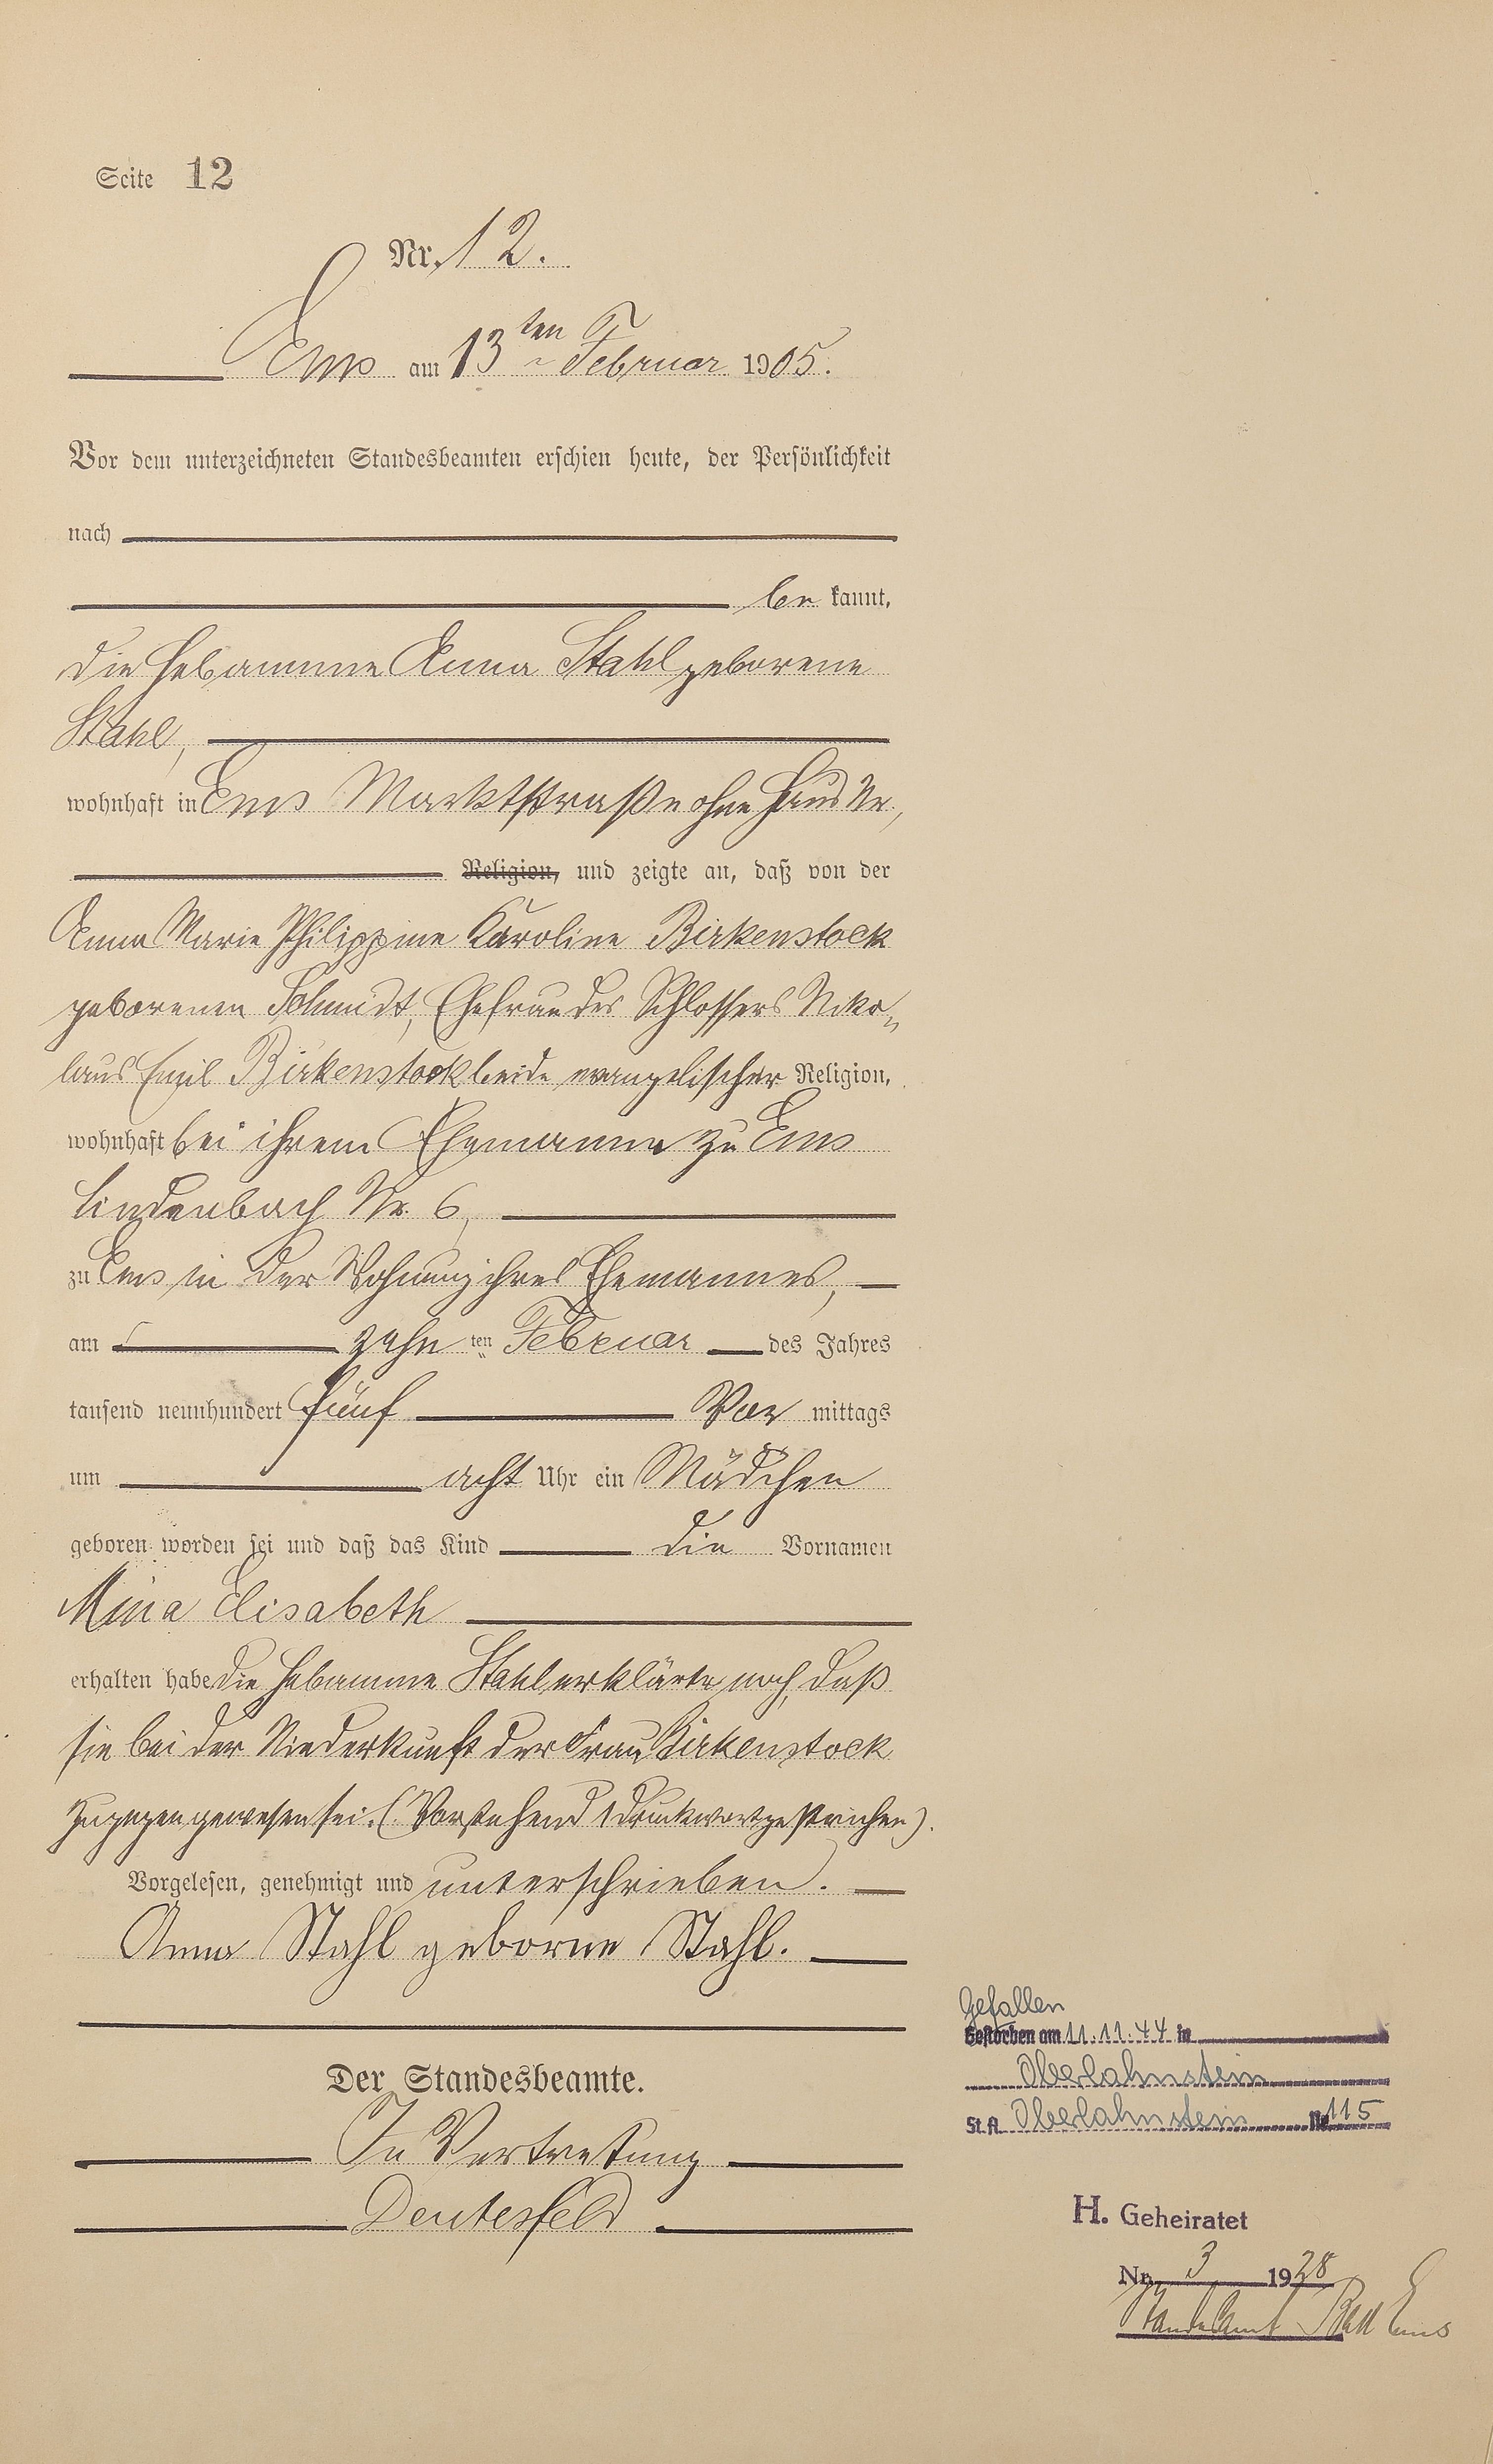 Seite 12
Nr. 12.
Ems am 13ten Februar 1905.
Vor dem unterzeichneten Standesbeamten erschien heute, der Persönlichkeit
nach
be kannt,
die Hebamme Anna Stahl geborene
Stahl,
wohnhaft in Ems Marktstraße ohne Haus Nr.,
Religion, und zeigte an, daß von der
Anna Marie Philippine Karoline Birkenstock
geborenen Schmidt, Ehefrau des Schlossers Niko-
laus Emil Birkenstock beide evangelischer Religion,
wohnhaft bei ihrem Ehemanne zu Ems
Lindenbach Nr. 6,
zu Ems in der Wohnung ihres Ehemannes,
am zehn ten Februar des Jahres
tausend neunhundert fünf Vor mittags
um acht Uhr ein Mädchen
geboren worden sei und daß das Kind die Vornamen
Mina Elisabeth
erhalten habe die Hebamme Stahl erklärte noch, daß
sie bei der Niederkunft der Frau Birkenstock
zugegen gewesen sei. (Vorstehend 1 Druckwort gestrichen).
Vorgelesen, genehmigt und unterschrieben.
Anna Stahl geborne Stahl.
Der Standesbeamte.
In Vertretung
Deutesfeld
Gefallen
Gestorben am 11.11.44 in
Oberlahnstein
St.A. Oberlahnstein Nr. 115
H. Geheiratet
Nr. 3 1928
Standesamt Bad Ems